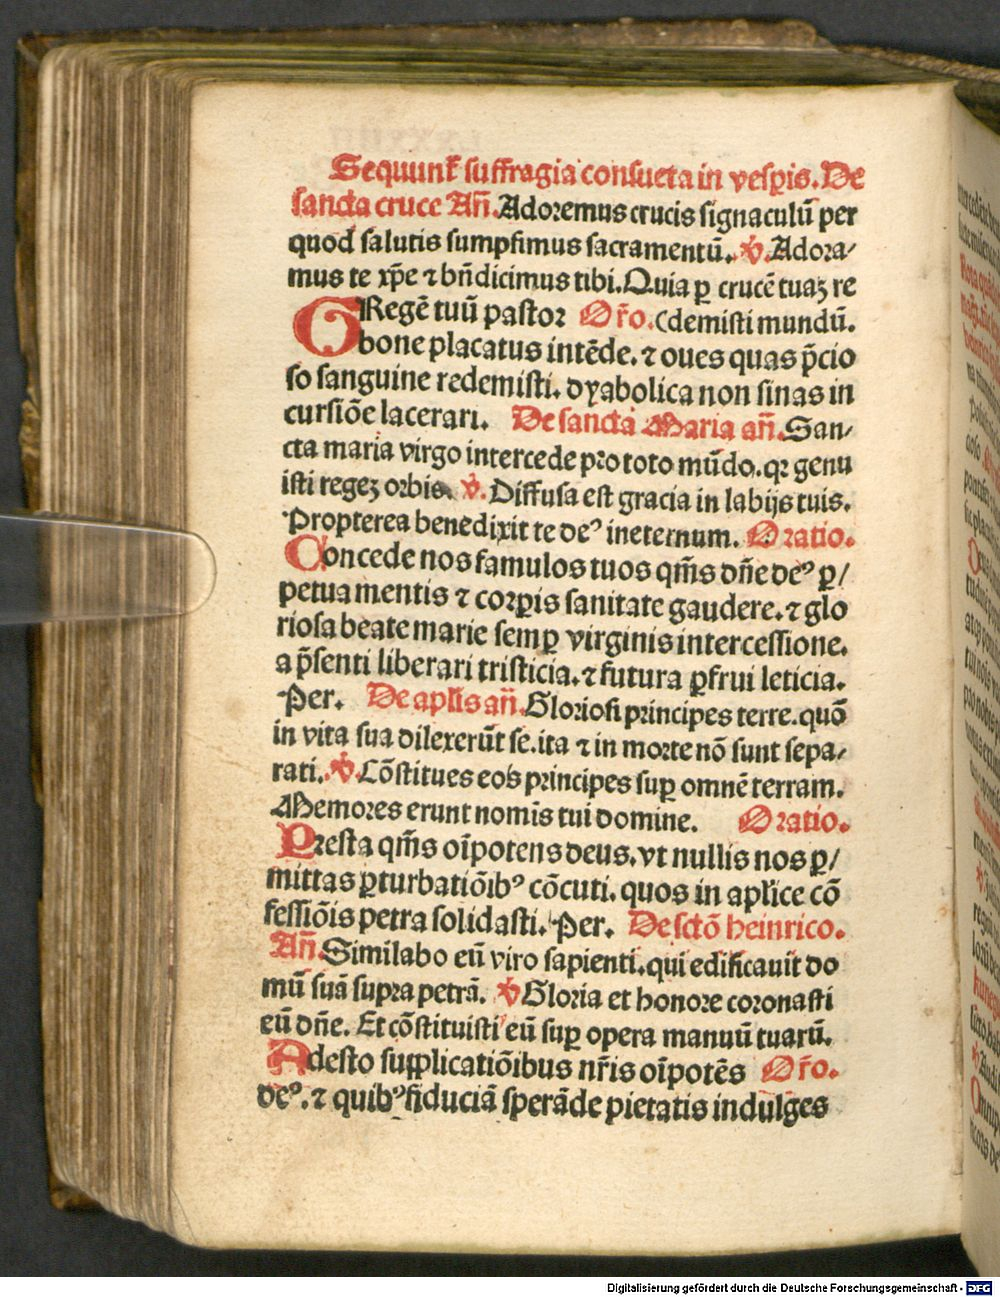 Sequunt᷑ suffragia consueta in vesp̱is. De
sancta cruce Añ. Adoremus crucis signaculū per
quod salutis sumpsimus sacramentū. ℣. Adora⸗
mus te xp̄e ⁊ bn̄dicimus tibi. Quia ꝑ crucē tuaꝫ re
GRegē tuū pastor Or̄o. (demisti mundū.
bone placatus intēde. ⁊ oues quas p̄cio
so sanguine redemisti. dyabolica non sinas in
cursiōe lacerari. De sancta Maria añ. San⸗
cta maria virgo intercede pro toto mūdo. qꝛ genu
isti regeꝫ orbis. ℣. Diffusa est gracia in labijs tuis.
Propterea benedixit te deꝰ ineternum. Oratio.
Concede nos famulos tuos qm̄s dn̄e deꝰ ꝑ/
petua mentis ⁊ corꝑis sanitate gaudere. ⁊ glo
riosa beate marie semꝑ virginis intercessione.
a p̄senti liberari tristicia. ⁊ futura ꝑfrui leticia.
Per. De apl̄is añ. Gloriosi principes terre. quō
in vita sua dilexerūt se. ita ⁊ in morte nō sunt sepa⸗
rati. ℣. Cōstitues eos principes suꝑ omnē terram.
Memores erunt nomīs tui domine. Oratio.
Presta qm̄s oīpotens deus. vt nullis nos ꝑ/
mittas ꝑturbatiōibꝰ cōcuti. quos in apl̄ice cō
fessiōis petra solidasti. Per. De sctō heinrico.
Añ. Similabo eū viro sapienti. qui edificauit do
mū suā supra petrā. ℣ Gloria et honore coronasti
eū dn̄e. Et cōstituisti eū suꝑ opera manuū tuarū.
Adesto supplicatiōibus nr̄is oīpotēs Or̄o.
deꝰ. ⁊ quibꝰ fiduciā sperāde pietatis indulges
Digitalisierung gefördert durch die Deutsche Forschungsgemeinschaft - DFG